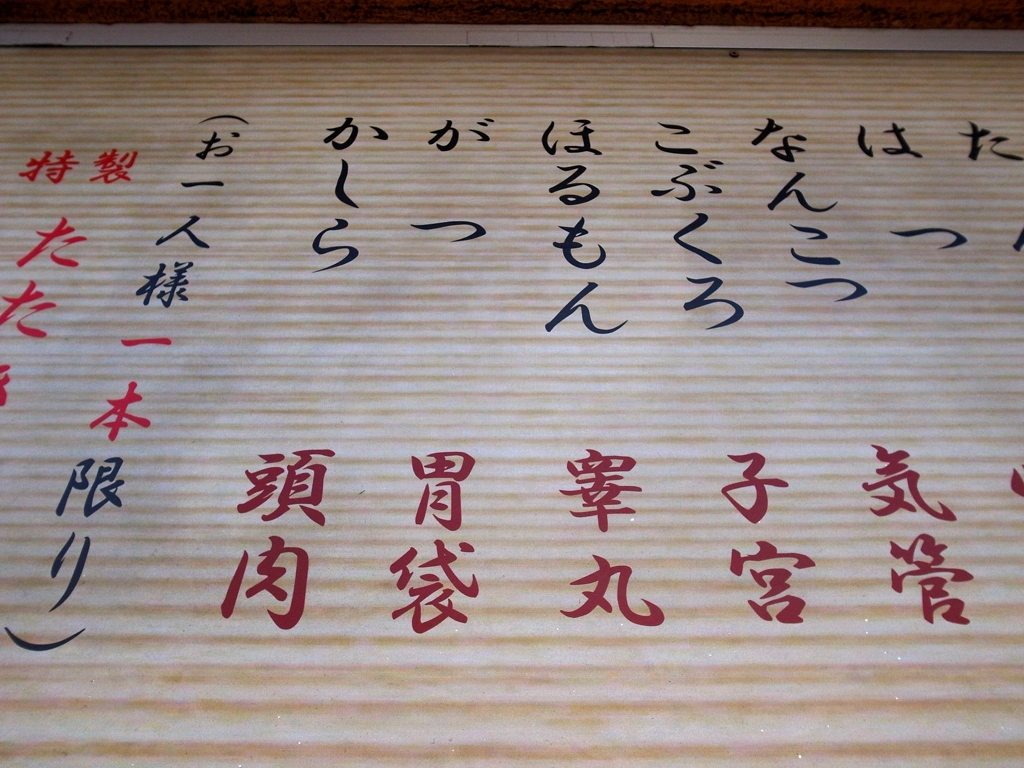 た
はつ
なんこつ 気管
こぶくろ 子宮
ほるもん 睾丸
がつ 胃袋
かしら 頭肉
(お一人様一本限り)
特製
たた